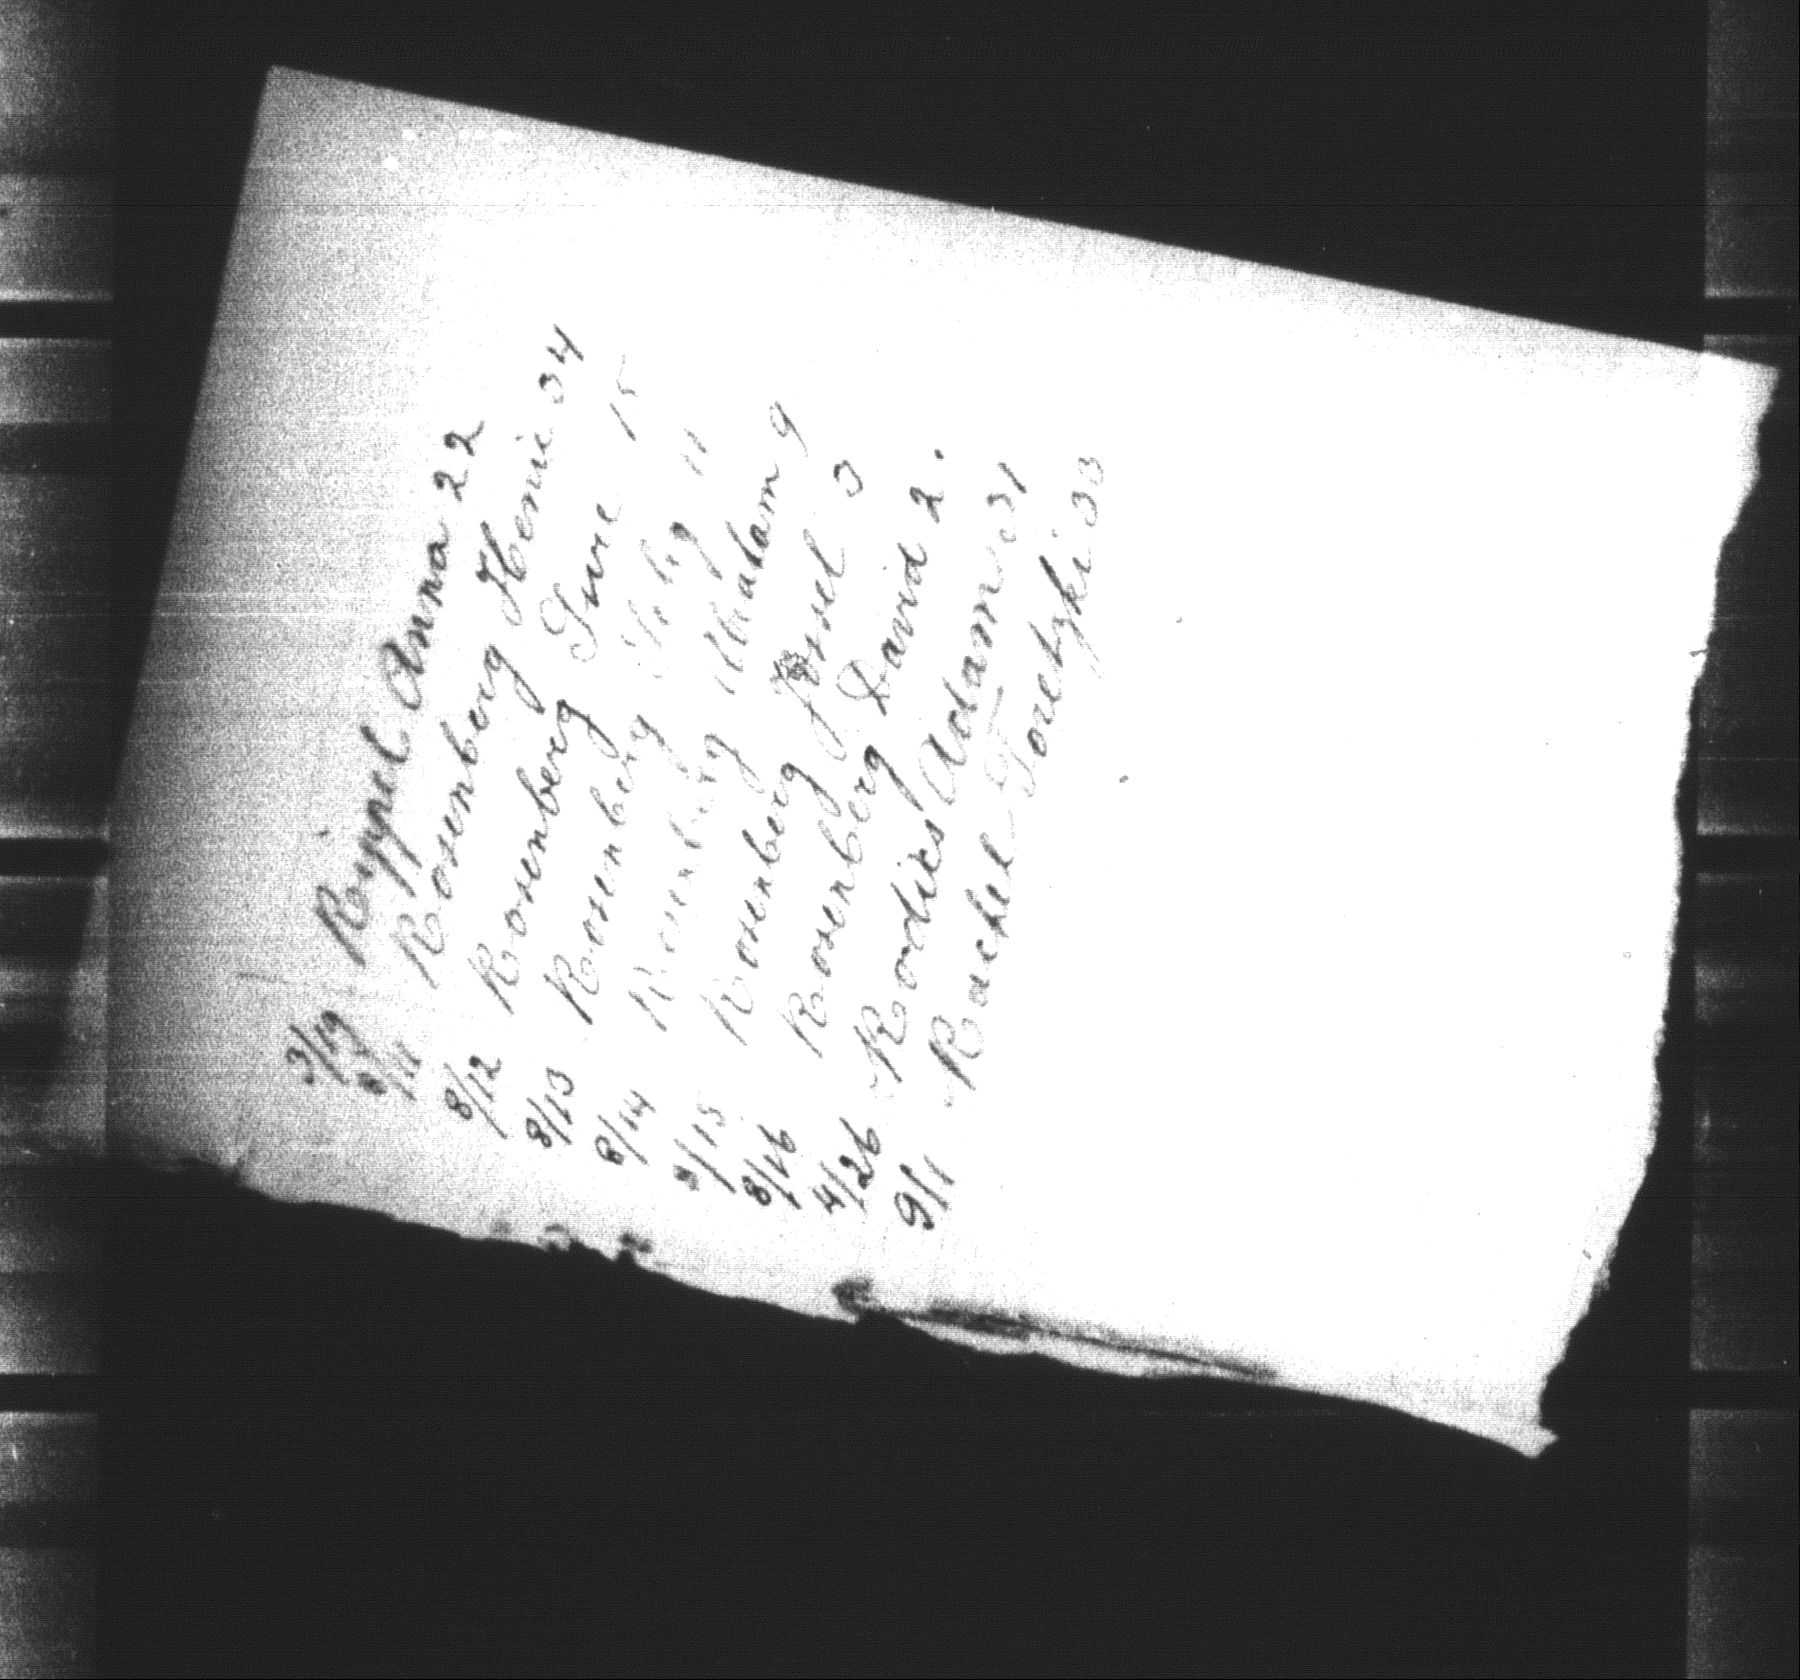 3/19 Rippel Anna 22
8/11 Rosenberg Henie 34
8/12 Rosenberg Sure 15
8/13 Rosenberg 11
8/14 Rosenberg 9
8/15 Rosenberg Jossel 3
8/16 Rosenberg David 2.
4/26 Rodies Adam 31
9/1 Rachel Toretzki 33